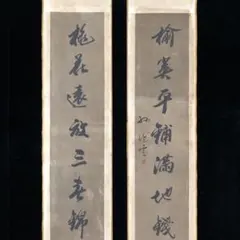 榆莢平鋪滿地錢
桃花遠放三春錦